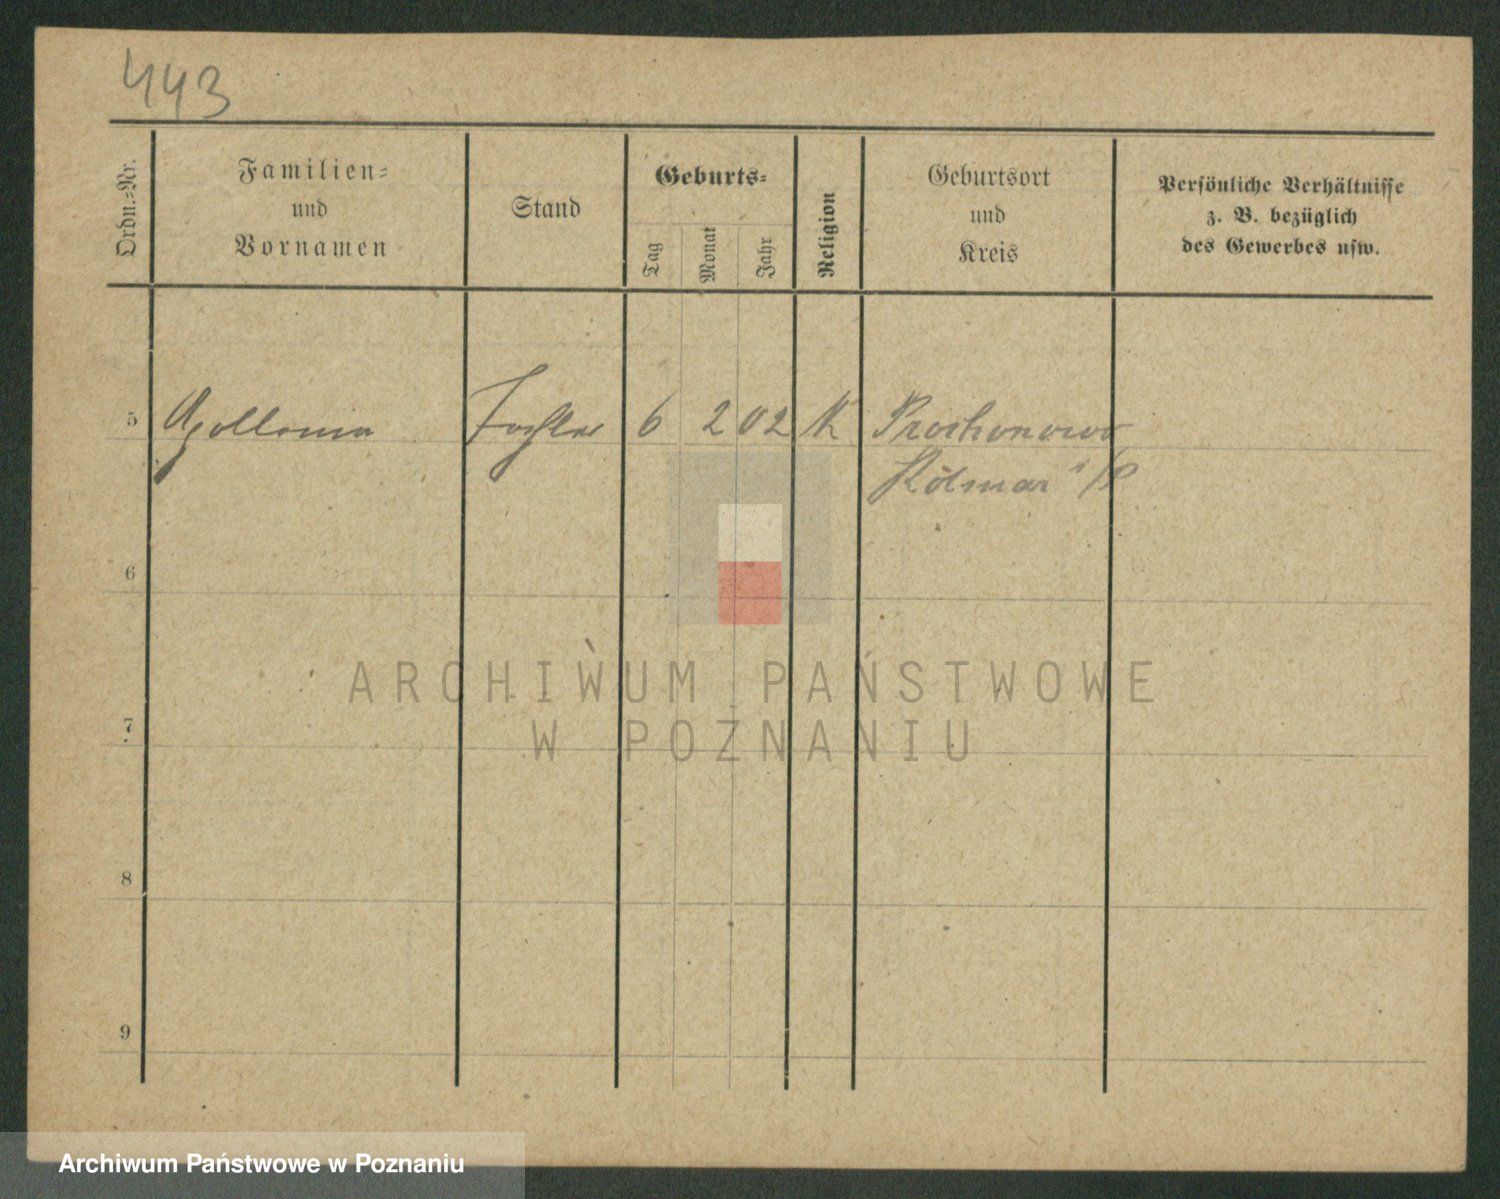 443
Ordn.=Nr.
Familien=
und
Vornamen
Stand
Geburts=
Tag
Monat
Jahr
Religion
Geburtsort
und
Kreis
Persönliche Verhältnisse
z. B. bezüglich
des Gewerbes usw.
5 Apollonia Tochter 6 2 02 K
Kolmar i/P
6
7
8
9
ARCHIWUM PAŃSTWOWE
W POZNANIU
Archiwum Państwowe w Poznaniu